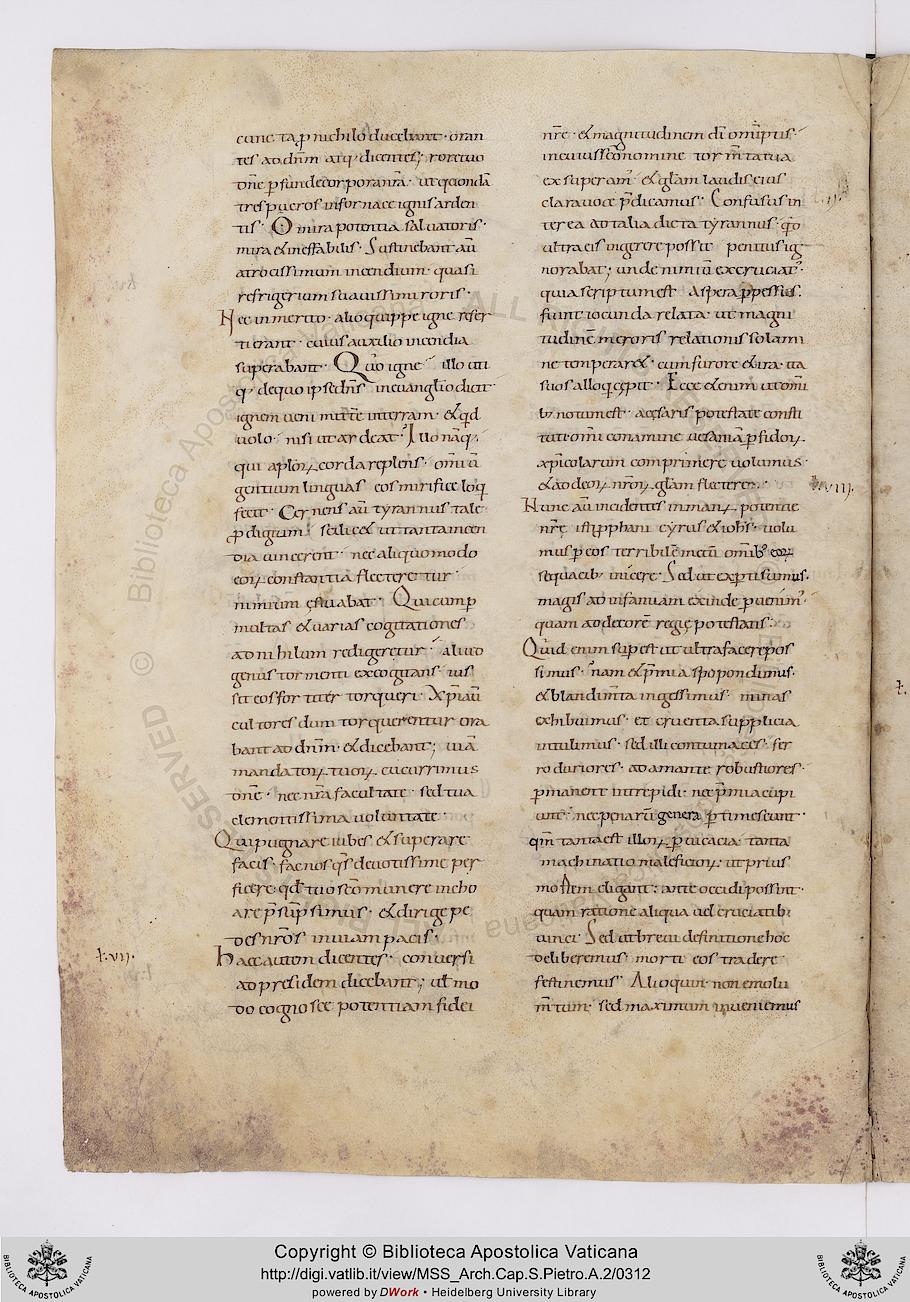 cunc ta p nichilo ducebant · oran
tes ad dnm atq; dicentes; rore tuo
dne psunde corpora nra · ut quonda
tres pueros in fornace ignis arden
tis · O mira potentia saluatoris ·
mira & ineffabilis · Sustinebant au
atrocissimum incendium · quasi
refrigerium suauissimi roris ·
Nec inmerito · alio quippe igne refer
ti erant · cuius auxilio incendia
superabant · Quo igne illo uti
q; de quo ipse dns in euanglio dicit ·
ignem ueni mittere in terram · & qd
uolo · nisi ut ardeat · Illo naq;
qui aplor corda replens · omiu
gentium linguas eos mirifice loq
fecit · Cernens au tyrannus tale
pdigium · scilic& ut tanta incen
dia uincerent · nec aliquo modo
eor constantia flecteretur ·
nimium estuabat · Qui cum p
multas & uarias cogitationes
ad nihilum redigeretur · aliud
genus tormenti excogitans · ius
sit eos fortiter torqueri · Xpi au
cultores dum torquerentur ora
bant ad dnm · & dicebant; uia
mandator tuor cucurrimus
dne · nec nra facultate · sed tua
clementissima uoluntate ·
Qui pugnare iubes & superare
facis · fac nos qs deuotissime per
ficere · qd tuo sco munere incho
are psupsimus · & dirige pe
des nros in uiam pacis ·
Haec autem dicentes · conuersi
ad presidem dicebant; uel mo
do cognosce potentiam fidei
t·vii·
nre · & magnitudinem di omiptis ·
in cuius sco nomine tormta tua
exsuperam · & glam laudis eius
clara uoce pdicamus · Confusus in
terea ad talia dicta tyrannus · qd
ultra eis ingerere possit penitus ig
norabat; unde nimiu excruciat ·
quia scriptum est Aspera ppessis ·
fiunt iocunda relata · ut magni
tudine meroris relationis solami
ne temperar& · cum furore & ira · ita
suos alloq cepit · Ecce etenim ut omi
b; notum est · a cesaris potestate consti
tuti · omi conamine uesania pfidor
xpicolarum comprimere uolumus ·
& ad deor nror glam flectere ·
Nunc au incidentes in manr potentie
nre isti pphani cyrus & iohs · uolu
mus p eos terribile metu omib; eor
sequacib; inicere · Sed ut experti sumus ·
magis ad insaniam exinde puenim ·
quam ad decore regie potestatis ·
Quid enim supest ut ultra facere pos
simus · nam & pmia spopondimus ·
& blandimta ingessimus · minas
exhibuimus · et cruenta supplicia
intulimus · sed illi contumaces · fer
ro duriores · adamante robustiores ·
pmanent intrepidi · nec pmia cupi
unt · nec penaru genera ptimescunt ·
qm tanta est illor puicacia · tanta
machinatio maleficior · ut prius
mortem eligant · ante occidi possint ·
quam ratione aliqua uel cruciatib;
uinci · Sed ut breui definitione hoc
deliberemus · morti eos tradere
festinemus · Alioquin · non emolu
mtum · sed maximum inueniemus
t·viii·
Copyright © Biblioteca Apostolica Vaticana
http://digi.vatlib.it/view/MSS_Arch.Cap.S.Pietro.A.2/0312
powered by DWork • Heidelberg University Library
BIBLIOTECA APOSTOLICA VATICANA
BIBLIOTECA APOSTOLICA VATICANA